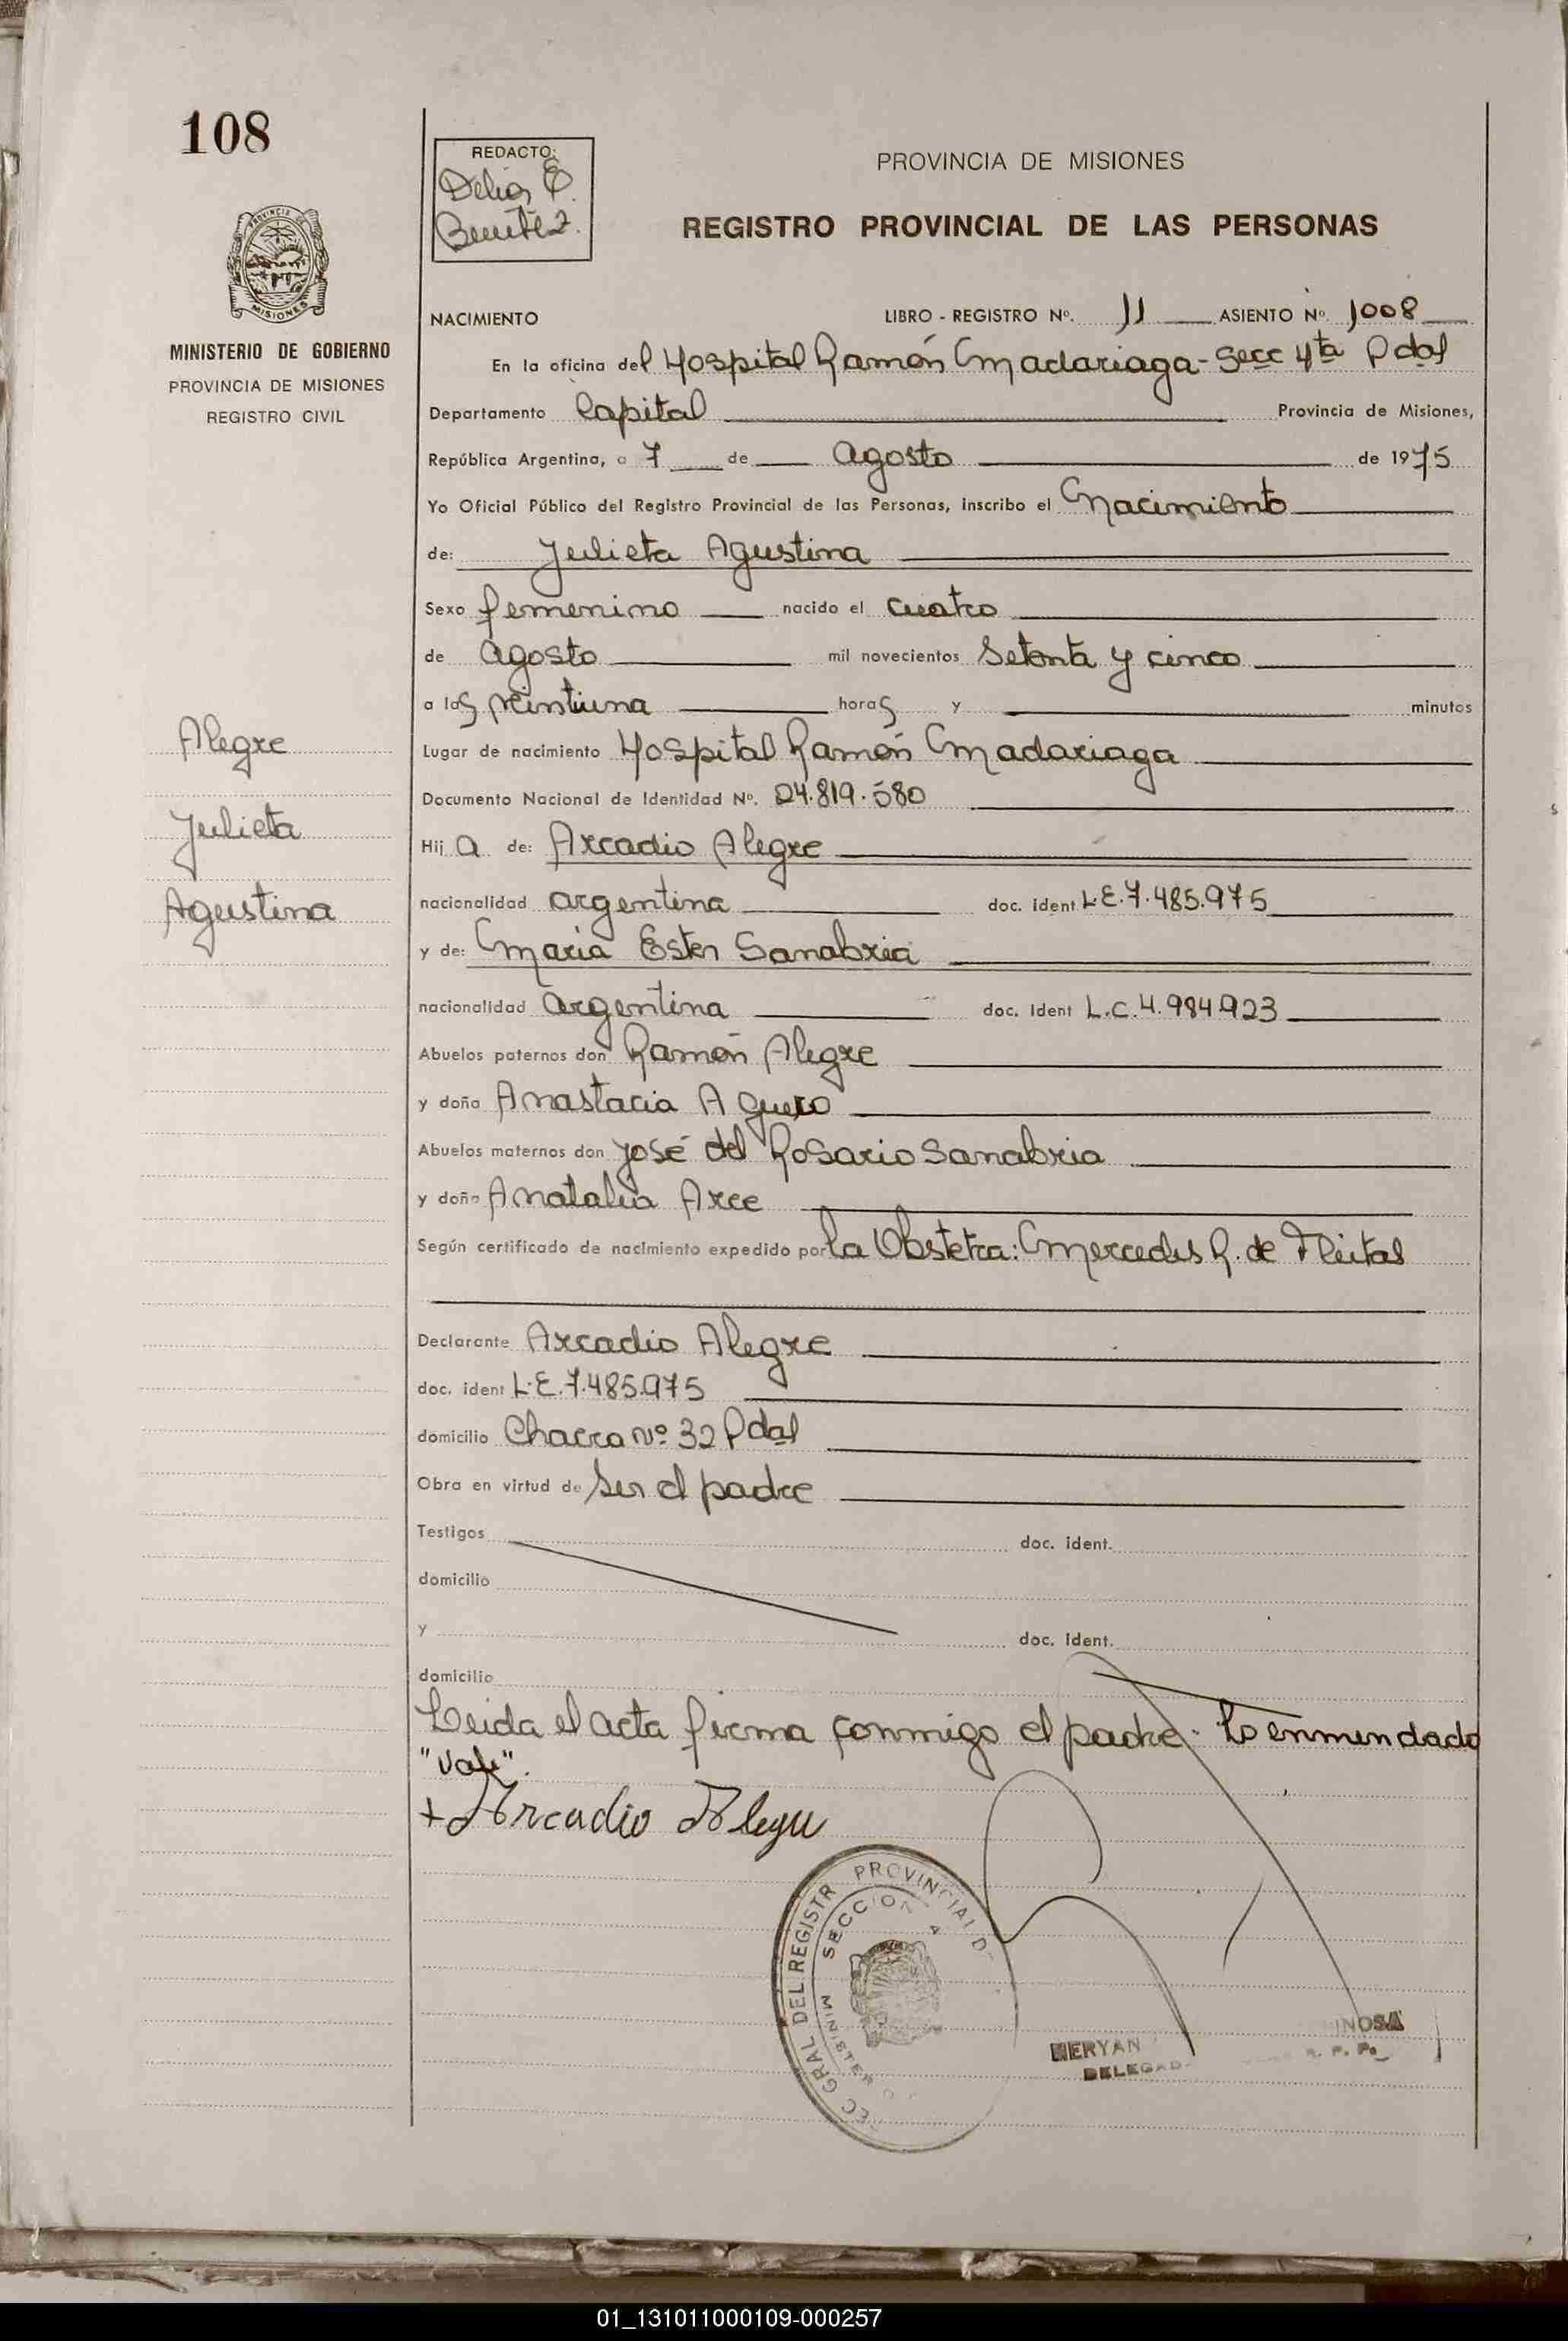 108
REDACTO:
Delia E.
Benitez.
PROVINCIA DE MISIONES
REGISTRO PROVINCIAL DE LAS PERSONAS
PROVINCIA DE
MISIONES
MINISTERIO DE GOBIERNO
PROVINCIA DE MISIONES
REGISTRO CIVIL
NACIMIENTO LIBRO - REGISTRO Nº. 11 ASIENTO Nº. 1008
En la oficina del Hospital Ramón Madariaga - Secc 4ta Pdas
Departamento Capital Provincia de Misiones,
República Argentina, a 7 de agosto de 1975
Yo Oficial Público del Registro Provincial de las Personas, inscribo el Nacimiento
de: Julieta Agustina
Sexo femenino nacido el cuatro
de agosto mil novecientos setenta y cinco
a las veintiuna horas y minutos
Lugar de nacimiento Hospital Ramón Madariaga
Documento Nacional de Identidad Nº. 24.819.580
Hija de: Arcadio Alegre
nacionalidad argentina doc. ident L.E.7.485.975
y de: Maria Ester Sanabria
nacionalidad argentina doc. ident L.C.4.984.923
Abuelos paternos don Ramón Alegre
y doña Anastacia Aguero
Abuelos maternos don José del Rosario Sanabria
y doña Anatalia Arce
Según certificado de nacimiento expedido por la Obstetra: Mercedes R. de Fleitas
Declarante Arcadio Alegre
doc. ident L.E.7.485.975
domicilio Chacra Nº 32 Pdas
Obra en virtud de ser el padre
Testigos doc. ident.
domicilio
y doc. ident.
domicilio
Leida el acta firma conmigo el padre. Lo enmendado
"vale".
+ Arcadio Alegre
Alegre
Julieta
Agustina
GRAL DEL REGISTR PROVINCIAL D
SECCION 4
MINISTE
MERYAN INOSA
DELEGAD R. P. P.
01_131011000109-000257